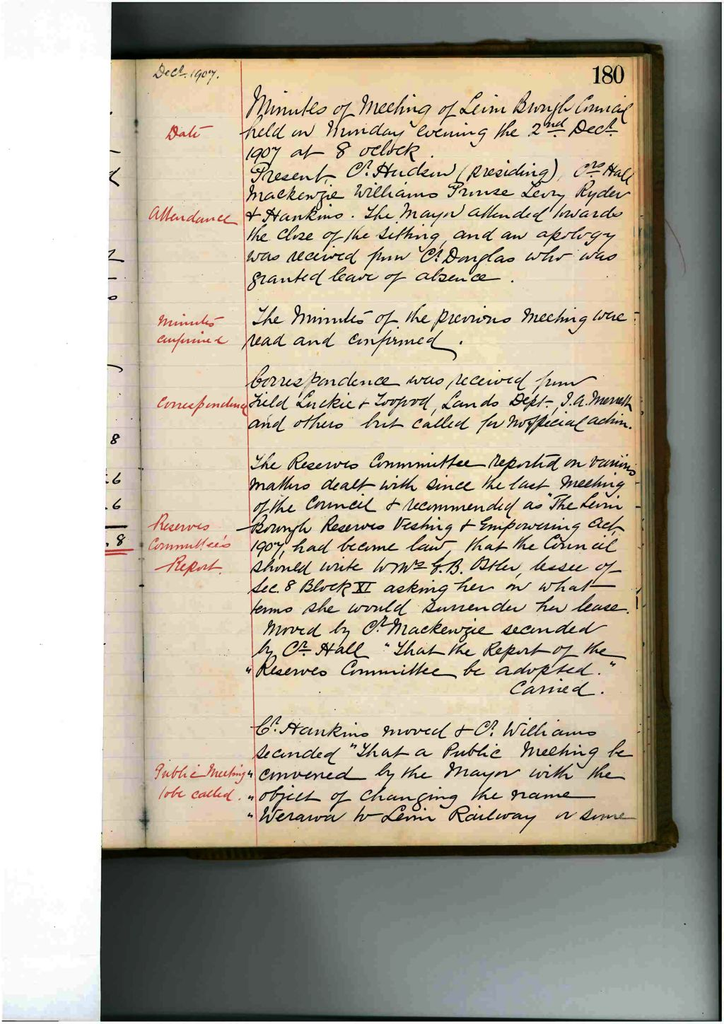 Decr. 1907.
180
Minutes of Meeting of Levin Borough Council
Date
held on Monday evening the 2nd Decr.
1907 at 8 oclock
Present, Cr. Hudson (presiding), Crs Hall
Mackenzie Williams Prouse Levy Ryder
Attendance
& Hankins. The Mayor attended towards
the close of the sitting, and an apology
was received from Cr. Douglas who was
granted leave of absence.
Minutes
confirmed
The Minutes of the previous Meeting were
read and confirmed.
Correspondence was received from
Correspondence
Field Luckie & Toogood, Lands Dept,
and others but called for no special action.
The Reserves Committee reported on various
matters dealt with since the last Meeting
of the Council & recommended as "The Levin
Reserves
Committee's
Report.
Borough Reserves Vesting & Empowering Act
1907, had become law, that the Council
should write to Mrs. lessee of
Sec. 8 Block XI asking her on what
terms she would surrender her lease.
Moved by Cr. Mackenzie seconded
by Cr. Hall "That the Report of the
"Reserves Committee be adopted."
Carried.
Cr. Hankins moved & Cr. Williams
seconded "That a Public Meeting be
Public Meeting
to be called.
"convened by the Mayor with the
"object of changing the name
"Weraroa to Levin Railway or some
8
.6
.6
.8